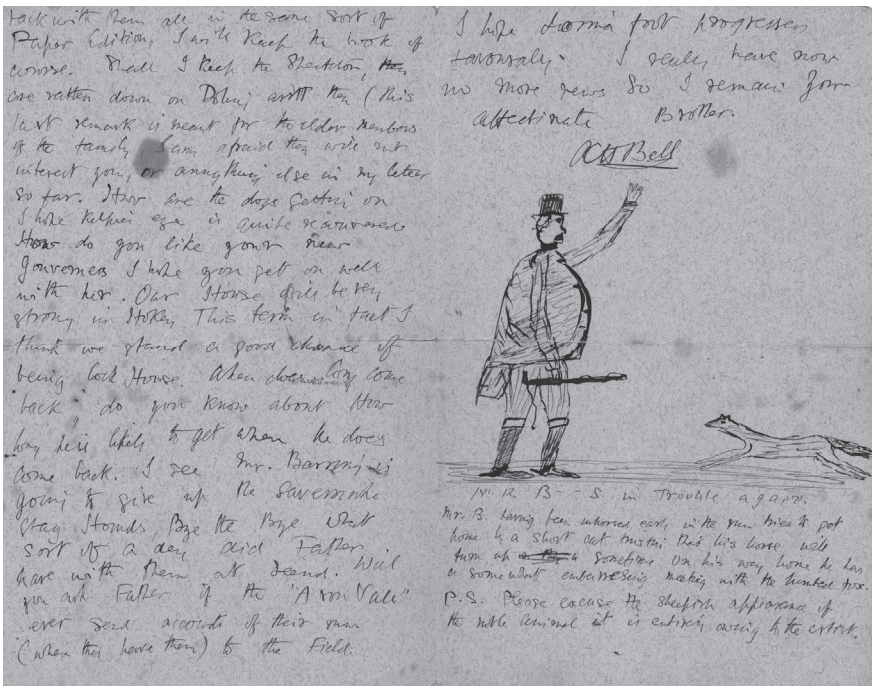 back with them all in the same sort of
Paper Edition, I will keep the book of
course. Shall I keep the Sheckton,
are ratten down on arntt then (this
last remark is meant for the elder members
of the family I am afraid they will not
interest you, or annything else in my letter
so far. How are the dogs gettin on
I hope Kelpies eye is quite recouvered.
How do you like your new
Gouverness I hope you get on well
with her. Our House will be very
strong in Hokey This term in fact I
think we stand a good chance of
being Cock House. When does Cosy come
back, do you know about How
long he is likely to get when he does
come back. I see Mr. is
going to give up the Savernake
Stag Hounds, Bye the Bye what
sort of a day did Father
have with them at Seend. Will
you ask Father if the "Avon Vale"
ever send accounts of their runs
(when they have them) to the Field.
I hope foot progresses
favouraly. I really have now
no more news So I remain your
affectinate Brother.
Bell
M. R. B--S. in Trouble again.
Mr. B. having been unhorsed early in the run tries to get
home by a short cut trustin that his horse will
turn up sometime. On his way home he has
a somewhat embarresing meeting with the hunted fox.
P.S. Please excuse the sheepish appearance of
the noble animal it is entirely owing to the artist.